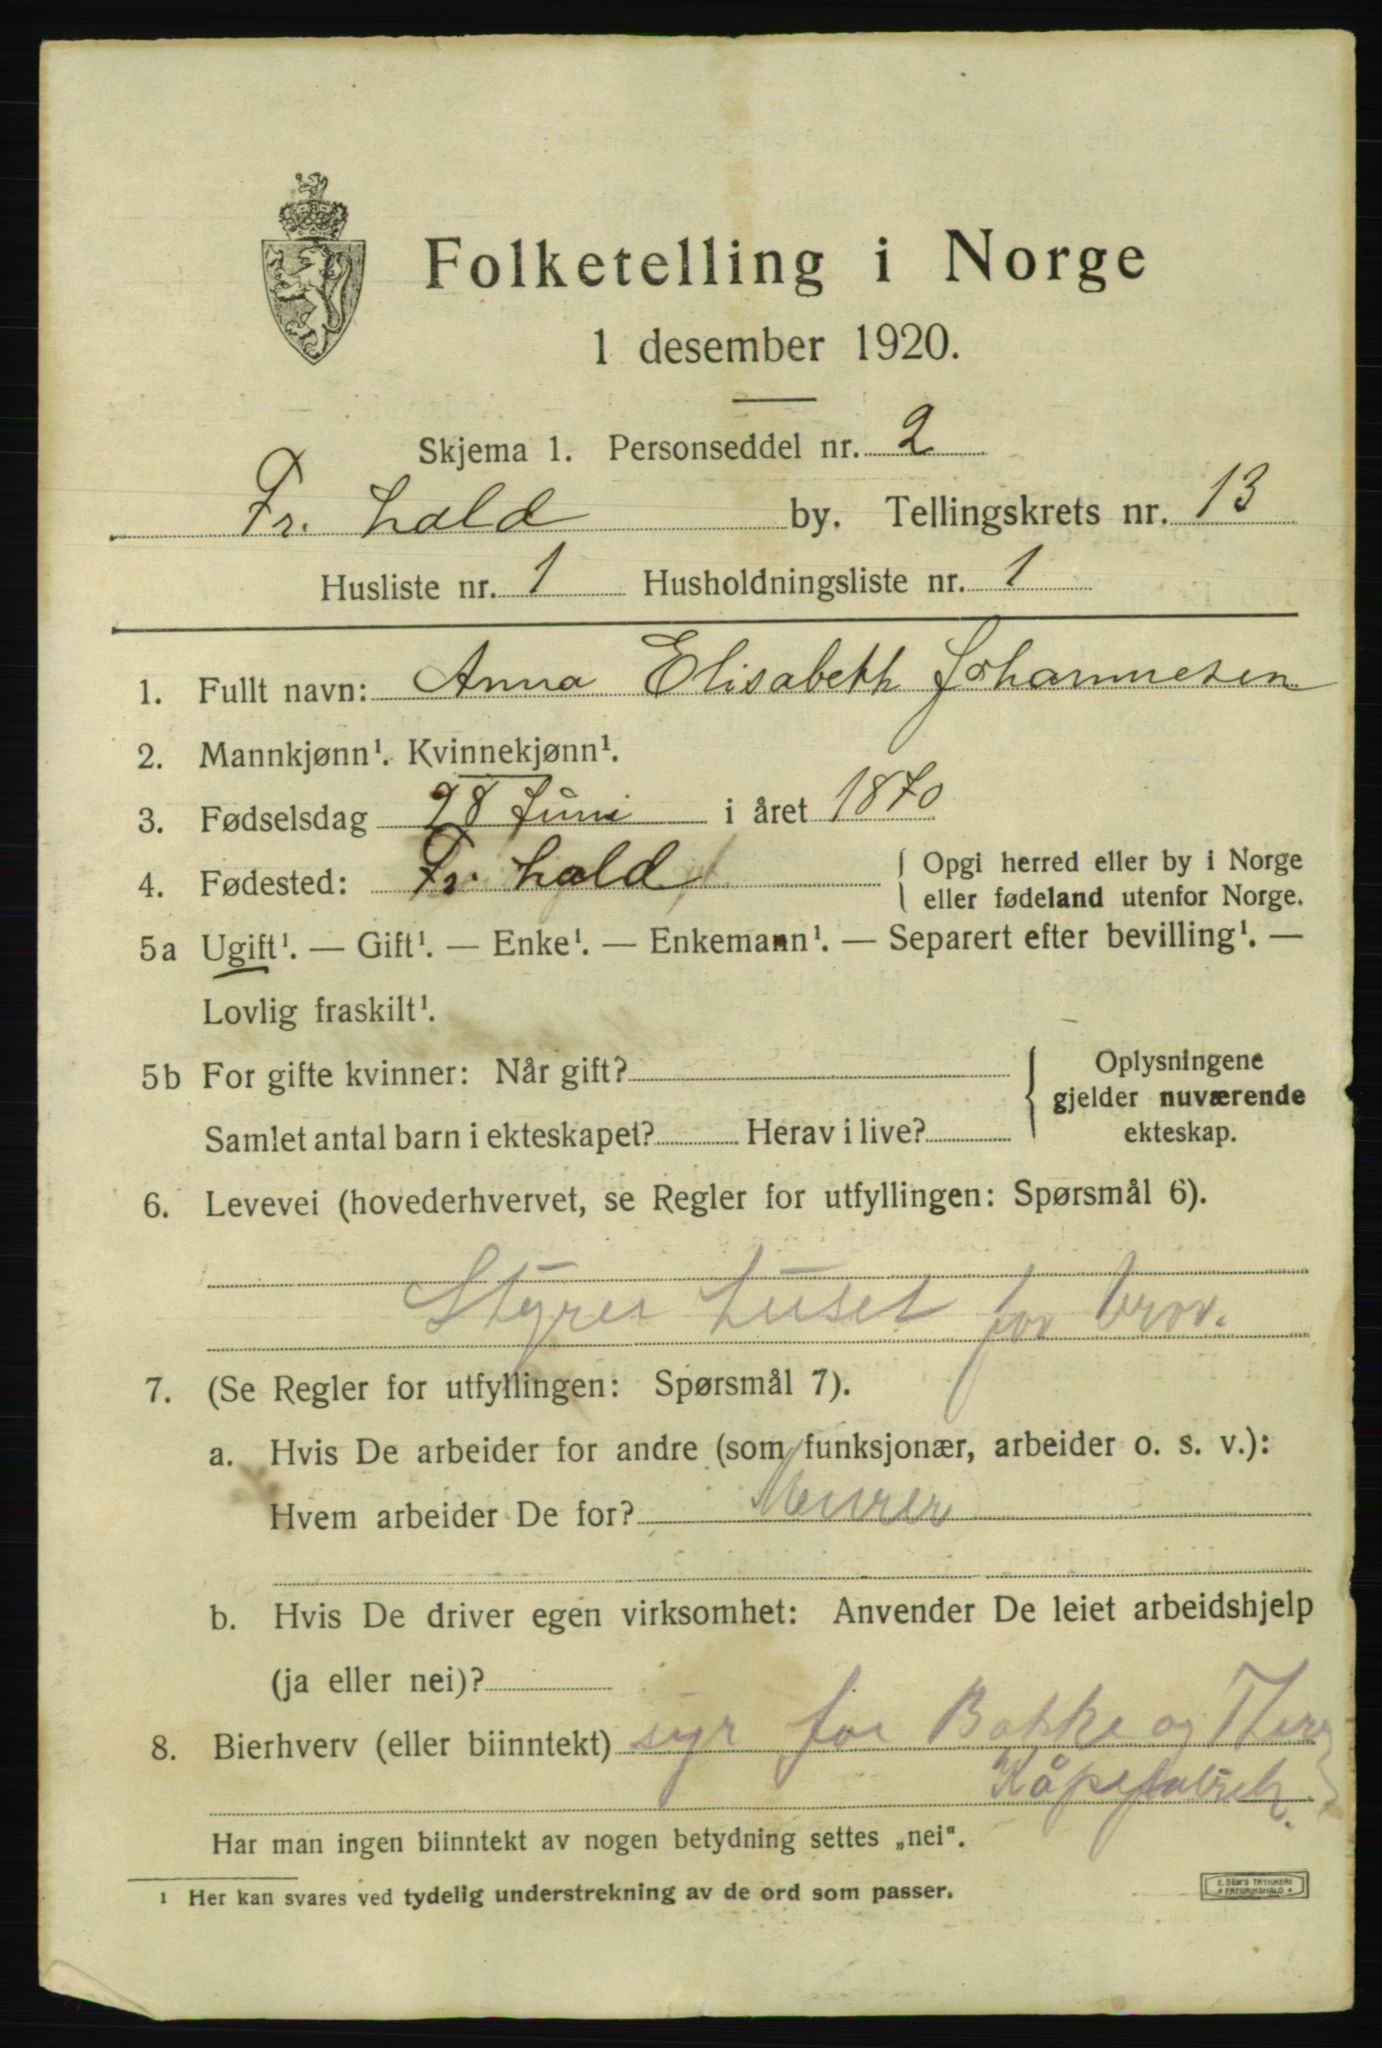 Folketelling i Norge
1 desember 1920.
Skjema 1. Personseddel nr. 2
Fr. hald by. Tellingskrets nr. 13
Husliste nr. 1 Husholdningsliste nr. 1
1. Fullt navn: Anna Elisabeth Johannesen
2. Mannkjønn¹. Kvinnekjønn¹.
3. Fødselsdag 28 Juni i året 1870
4. Fødested: Fr. hald { Opgi herred eller by i Norge
eller fødeland utenfor Norge.
5a Ugift¹. — Gift¹. — Enke¹. — Enkemann¹. — Separert efter bevilling¹. —
Lovlig fraskilt¹.
5b For gifte kvinner: Når gift?
Samlet antal barn i ekteskapet? Herav i live?
Oplysningene
gjelder nuværende
ekteskap.
6. Levevei (hovederhvervet, se Regler for utfyllingen: Spørsmål 6).
Styrer huset for bror.
7. (Se Regler for utfyllingen: Spørsmål 7).
a. Hvis De arbeider for andre (som funksjonær, arbeider o. s. v.):
Hvem arbeider De for? Murer
b. Hvis De driver egen virksomhet: Anvender De leiet arbeidshjelp
(ja eller nei)?
8. Bierhverv (eller biinntekt) syr for Bakke og
Kåpefabrik.
Har man ingen biinntekt av nogen betydning settes „nei".
¹ Her kan svares ved tydelig understrekning av de ord som passer.
E. SEM'S TRYKKERI
FREDRIKSHALD